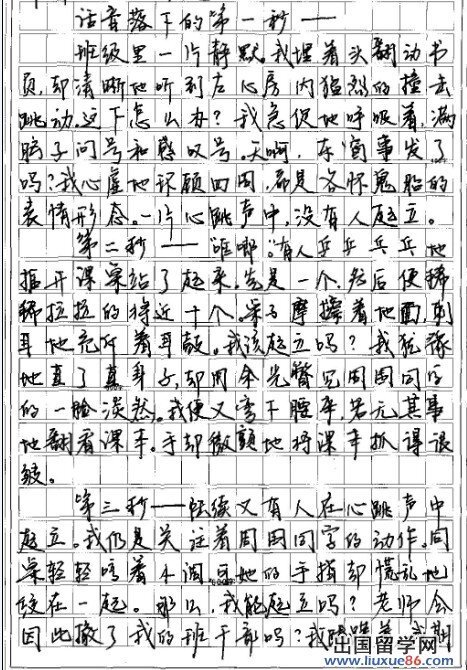 话音落下的第一秒——
班级里一片静默。我埋着头翻动书
页,却清晰地听到左心房内猛烈的撞击
跳动。这下怎么办?我急促地呼吸着,满
脑子问号和感叹号。天啊,东窗事发了
吗?我心虚地环顾四周,都是各怀鬼胎的
表情形态。一片心跳声中,没有人起立。
第二秒——“哐啷”。有人乒乒乓乓地
推开课桌站了起来。先是一个,然后便稀
稀拉拉的将近十个。桌子摩擦着地面,刺
耳地充斥着耳鼓。我该起立吗?我犹豫
地直了直身子,却用余光瞥见周围同学
的一脸淡然。我便又弯下腰来,若无其事
地翻看课本。手却微颤地将课本抓得很
皱。
第三秒——陆续又有人在心跳声中
起立。我仍是关注着周围同学的动作。同
桌轻轻哼着小调可她的手指却慌乱地
绞在一起。那么,我能起立吗?老师会
因此撤了我的班干部吗?我
出国留学网
www.liuxue86.com